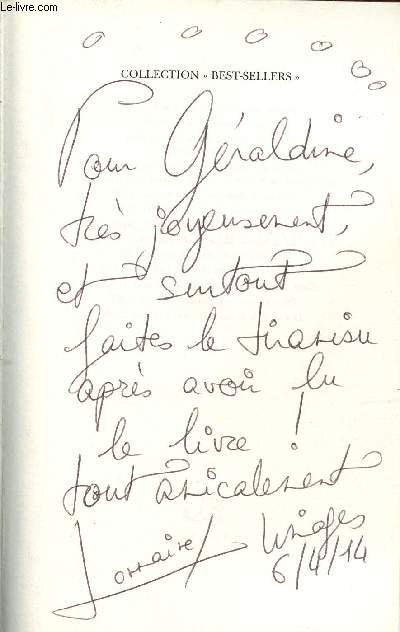 Le-livre.com
COLLECTION « BEST-SELLERS »
Pour Géraldine,
très joyeusement,
et surtout
faites le tiramisu
après avoir lu
le livre !
tout amicalement
Lorraine Limoges
6/4/14